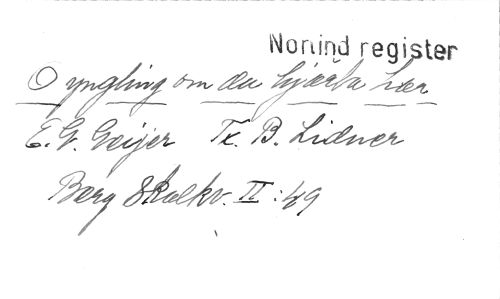 Nonind register
O yngling om du hjärta har
E. G. Geijer Tx. B. Lidner
Berg Skolkv. II : 49